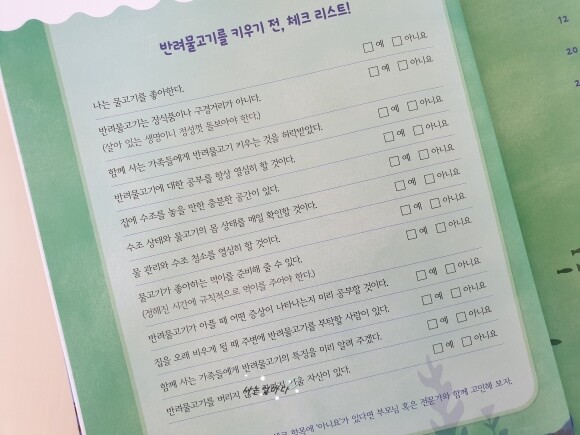 반려물고기를 키우기 전, 체크 리스트!
나는 물고기를 좋아한다. □ 예 □ 아니요
반려물고기는 장식품이나 구경거리가 아니다. □ 예 □ 아니요
(살아 있는 생명이니 정성껏 돌보아야 한다.)
함께 사는 가족들에게 반려물고기 키우는 것을 허락받았다. □ 예 □ 아니요
반려물고기에 대한 공부를 항상 열심히 할 것이다. □ 예 □ 아니요
집에 수조를 놓을 만한 충분한 공간이 있다. □ 예 □ 아니요
수조 상태와 물고기의 몸 상태를 매일 확인할 것이다. □ 예 □ 아니요
물 관리와 수조 청소를 열심히 할 것이다. □ 예 □ 아니요
물고기가 좋아하는 먹이를 준비해 줄 수 있다. □ 예 □ 아니요
(정해진 시간에 규칙적으로 먹이를 주어야 한다.)
반려물고기가 아플 때 어떤 증상이 나타나는지 미리 공부할 것이다. □ 예 □ 아니요
집을 오래 비우게 될 때 주변에 반려물고기를 부탁할 사람이 있다. □ 예 □ 아니요
함께 사는 가족들에게 반려물고기의 특징을 미리 알려 주겠다. □ 예 □ 아니요
반려물고기를 버리지 자신이 있다. □ 예 □ 아니요
항목에 '아니요'가 있다면 부모님 혹은 전문가와 함께 고민해 보자.
12
20